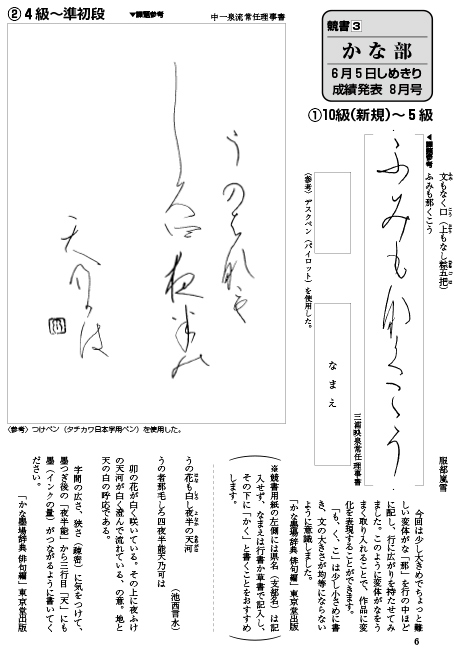 競書3
かな部
6月5日しめきり
成績発表 8月号
①10級(新規)〜5級
◀課題参考
文もなく口(上もなし粽五把)
ふみも那くこう
服部嵐雪
ふみも那くこう
三浦映泉常任理事書
なまえ
(参考)デスクペン(パイロット)を使用した。
今回は少し大きめでちょっと難
しい変体がな「那」を行の中ほど
に配し、行に広がりを持たせてみ
ました。このように変体がなをう
まく取り入れることで、作品に変
化を表現することができます。
「も、く、こ」は少し小さめに書
き、文の大きさが均等にならない
ように意識しました。
「かな墨場辞典 俳句編」東京堂出版
※競書用紙の左側には県名(支部名)は記
入せず、なまえは行書か草書で記入し、
その下に「かく」と書くことをおすすめ
します。
②4級〜準初段
▼課題参考
中一泉流常任理事書
うの者那毛
しろ四夜半能
天乃可は
(参考)つけペン(タチカワ日本字用ペン)を使用した。
うの花も白し夜半の天河
うの者那毛しろ四夜半能天乃可は
(池西言水)
卯の花が白く咲いている。その上に夜ふけ
の天河が白く澄んで流れている、の意。地と
天の白の呼応である。
字間の広さ、狭さ(疎密)に気をつけて、
墨つぎ後の「夜半能」から三行目「天」にも
墨(インクの量)がつながるように書いてく
ださい。
「かな墨場辞典 俳句編」東京堂出版
6